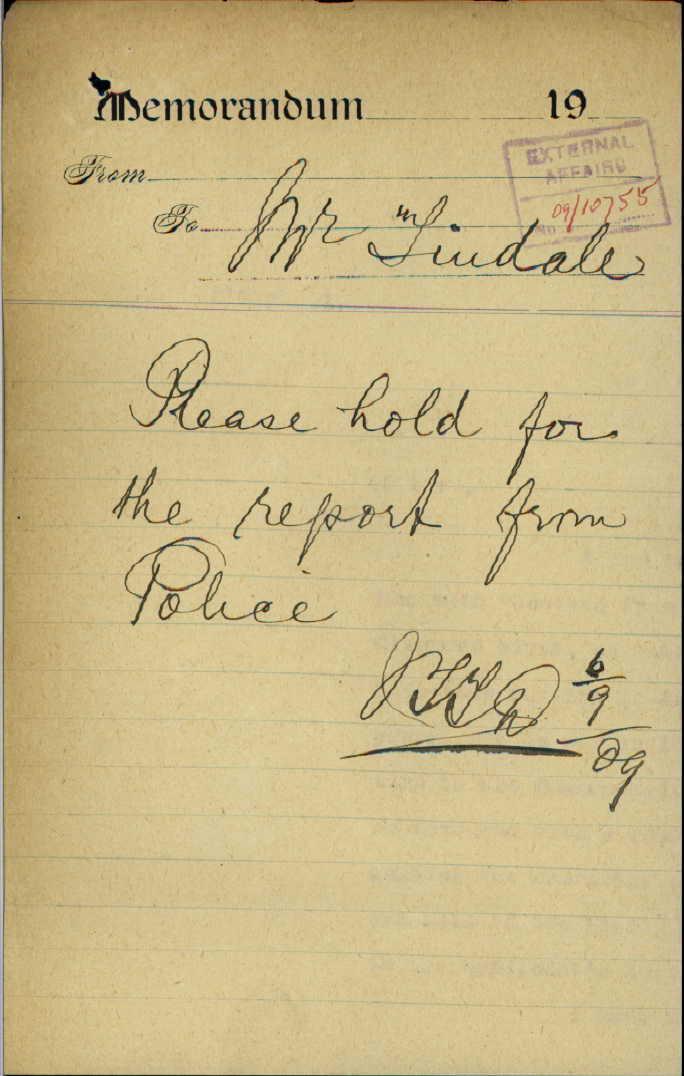 Memorandum 19
EXTERNAL
AFFAIRS
09/10755
From
To Mr Lindale
Please hold for
the report from
Police
6/9/09